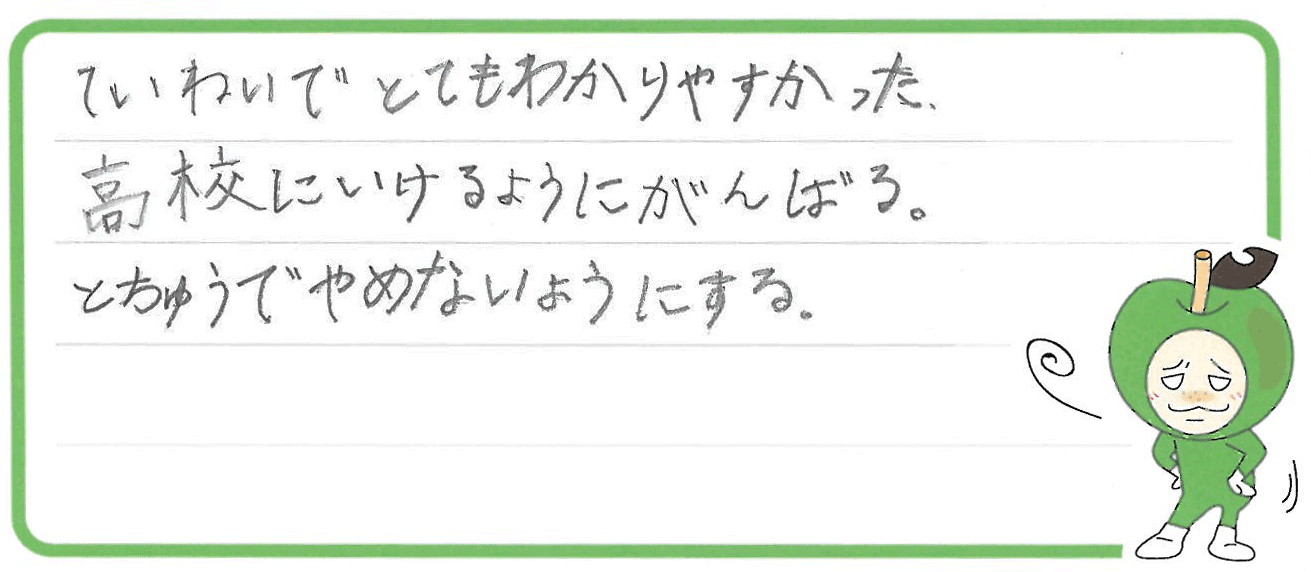 ていねいでとてもわかりやすかった、
高校にいけるようにがんばる。
とちゅうでやめないようにする。